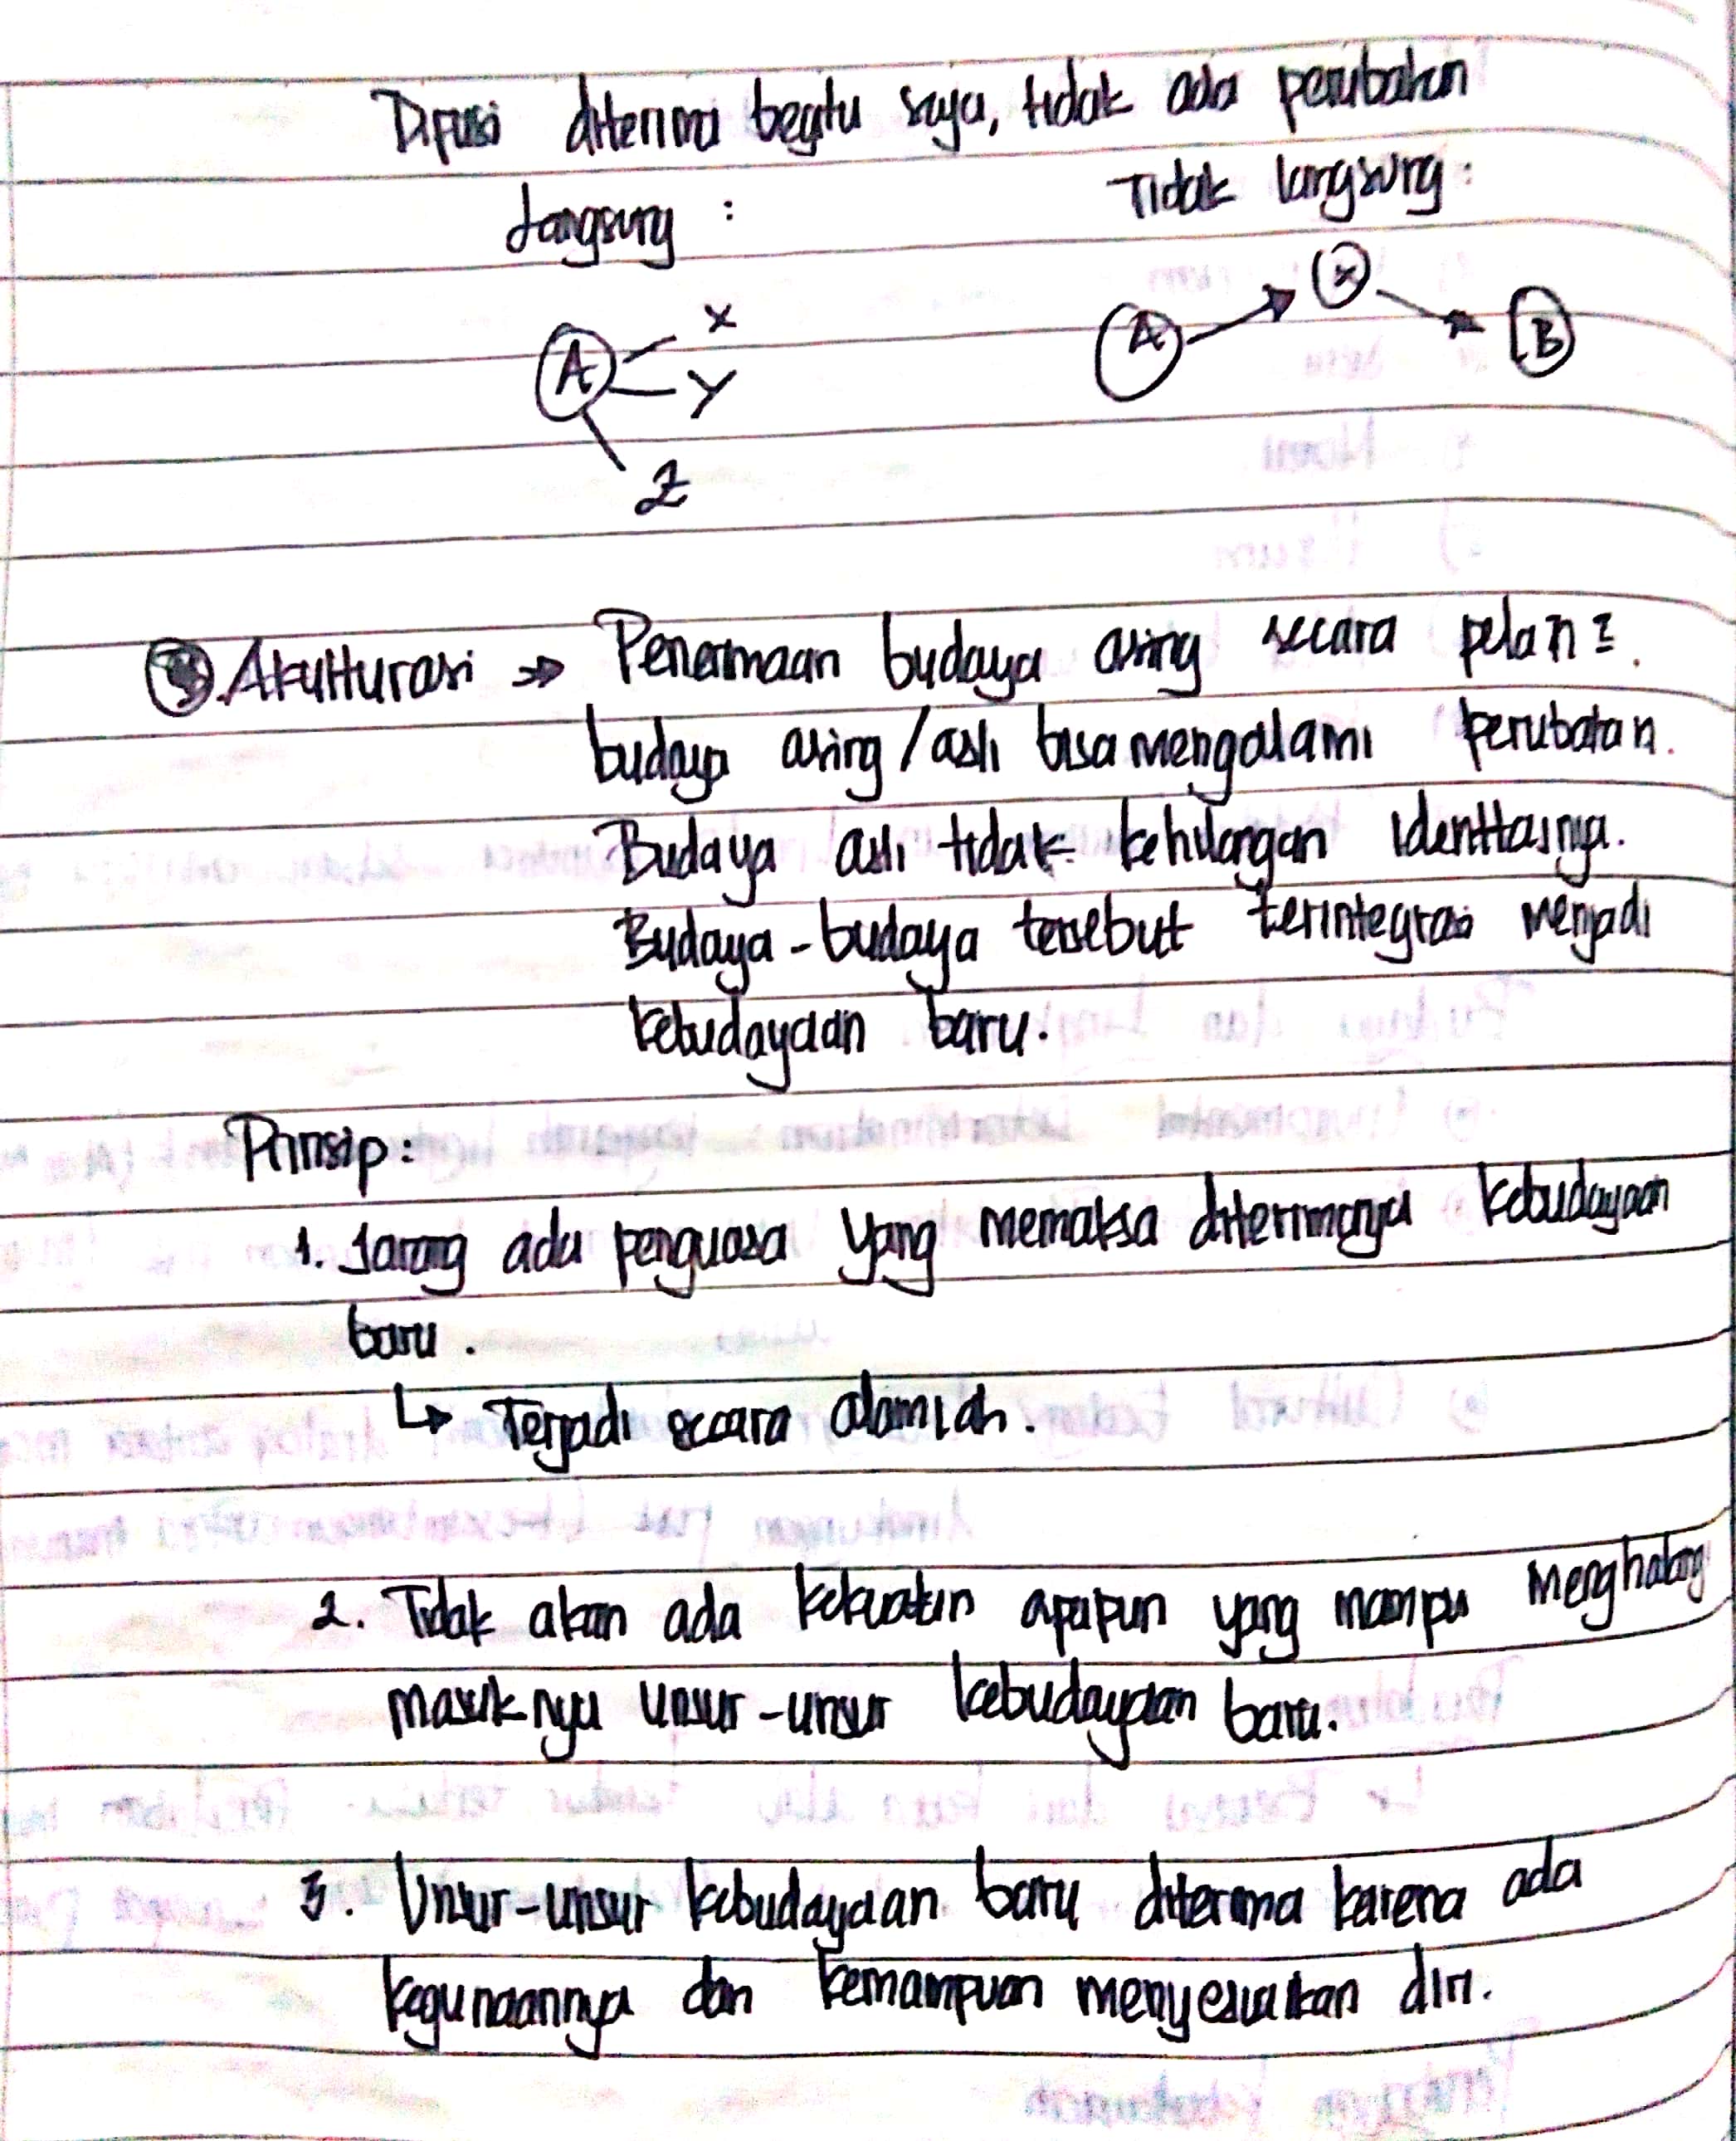 Difusi diterima begitu saja, tidak ada perubahan
Langsung :
Tidak langsung :
A X Y Z
A X B
3. Akulturasi → Penerimaan budaya asing secara pelan².
budaya asing / asli bisa mengalami perubahan.
Budaya asli tidak kehilangan identitasnya.
Budaya - budaya tersebut terintegrasi menjadi
kebudayaan baru.
Prinsip :
1. Jarang ada penguasa yang memaksa diterimanya kebudayaan
baru.
↳ Terjadi secara alamiah.
2. Tidak akan ada kekuatan apapun yang mampu menghalang
masuknya unsur-unsur kebudayaan baru.
3. Unsur-unsur kebudayaan baru diterima karena ada
kegunaannya dan kemampuan menyesuaikan diri.